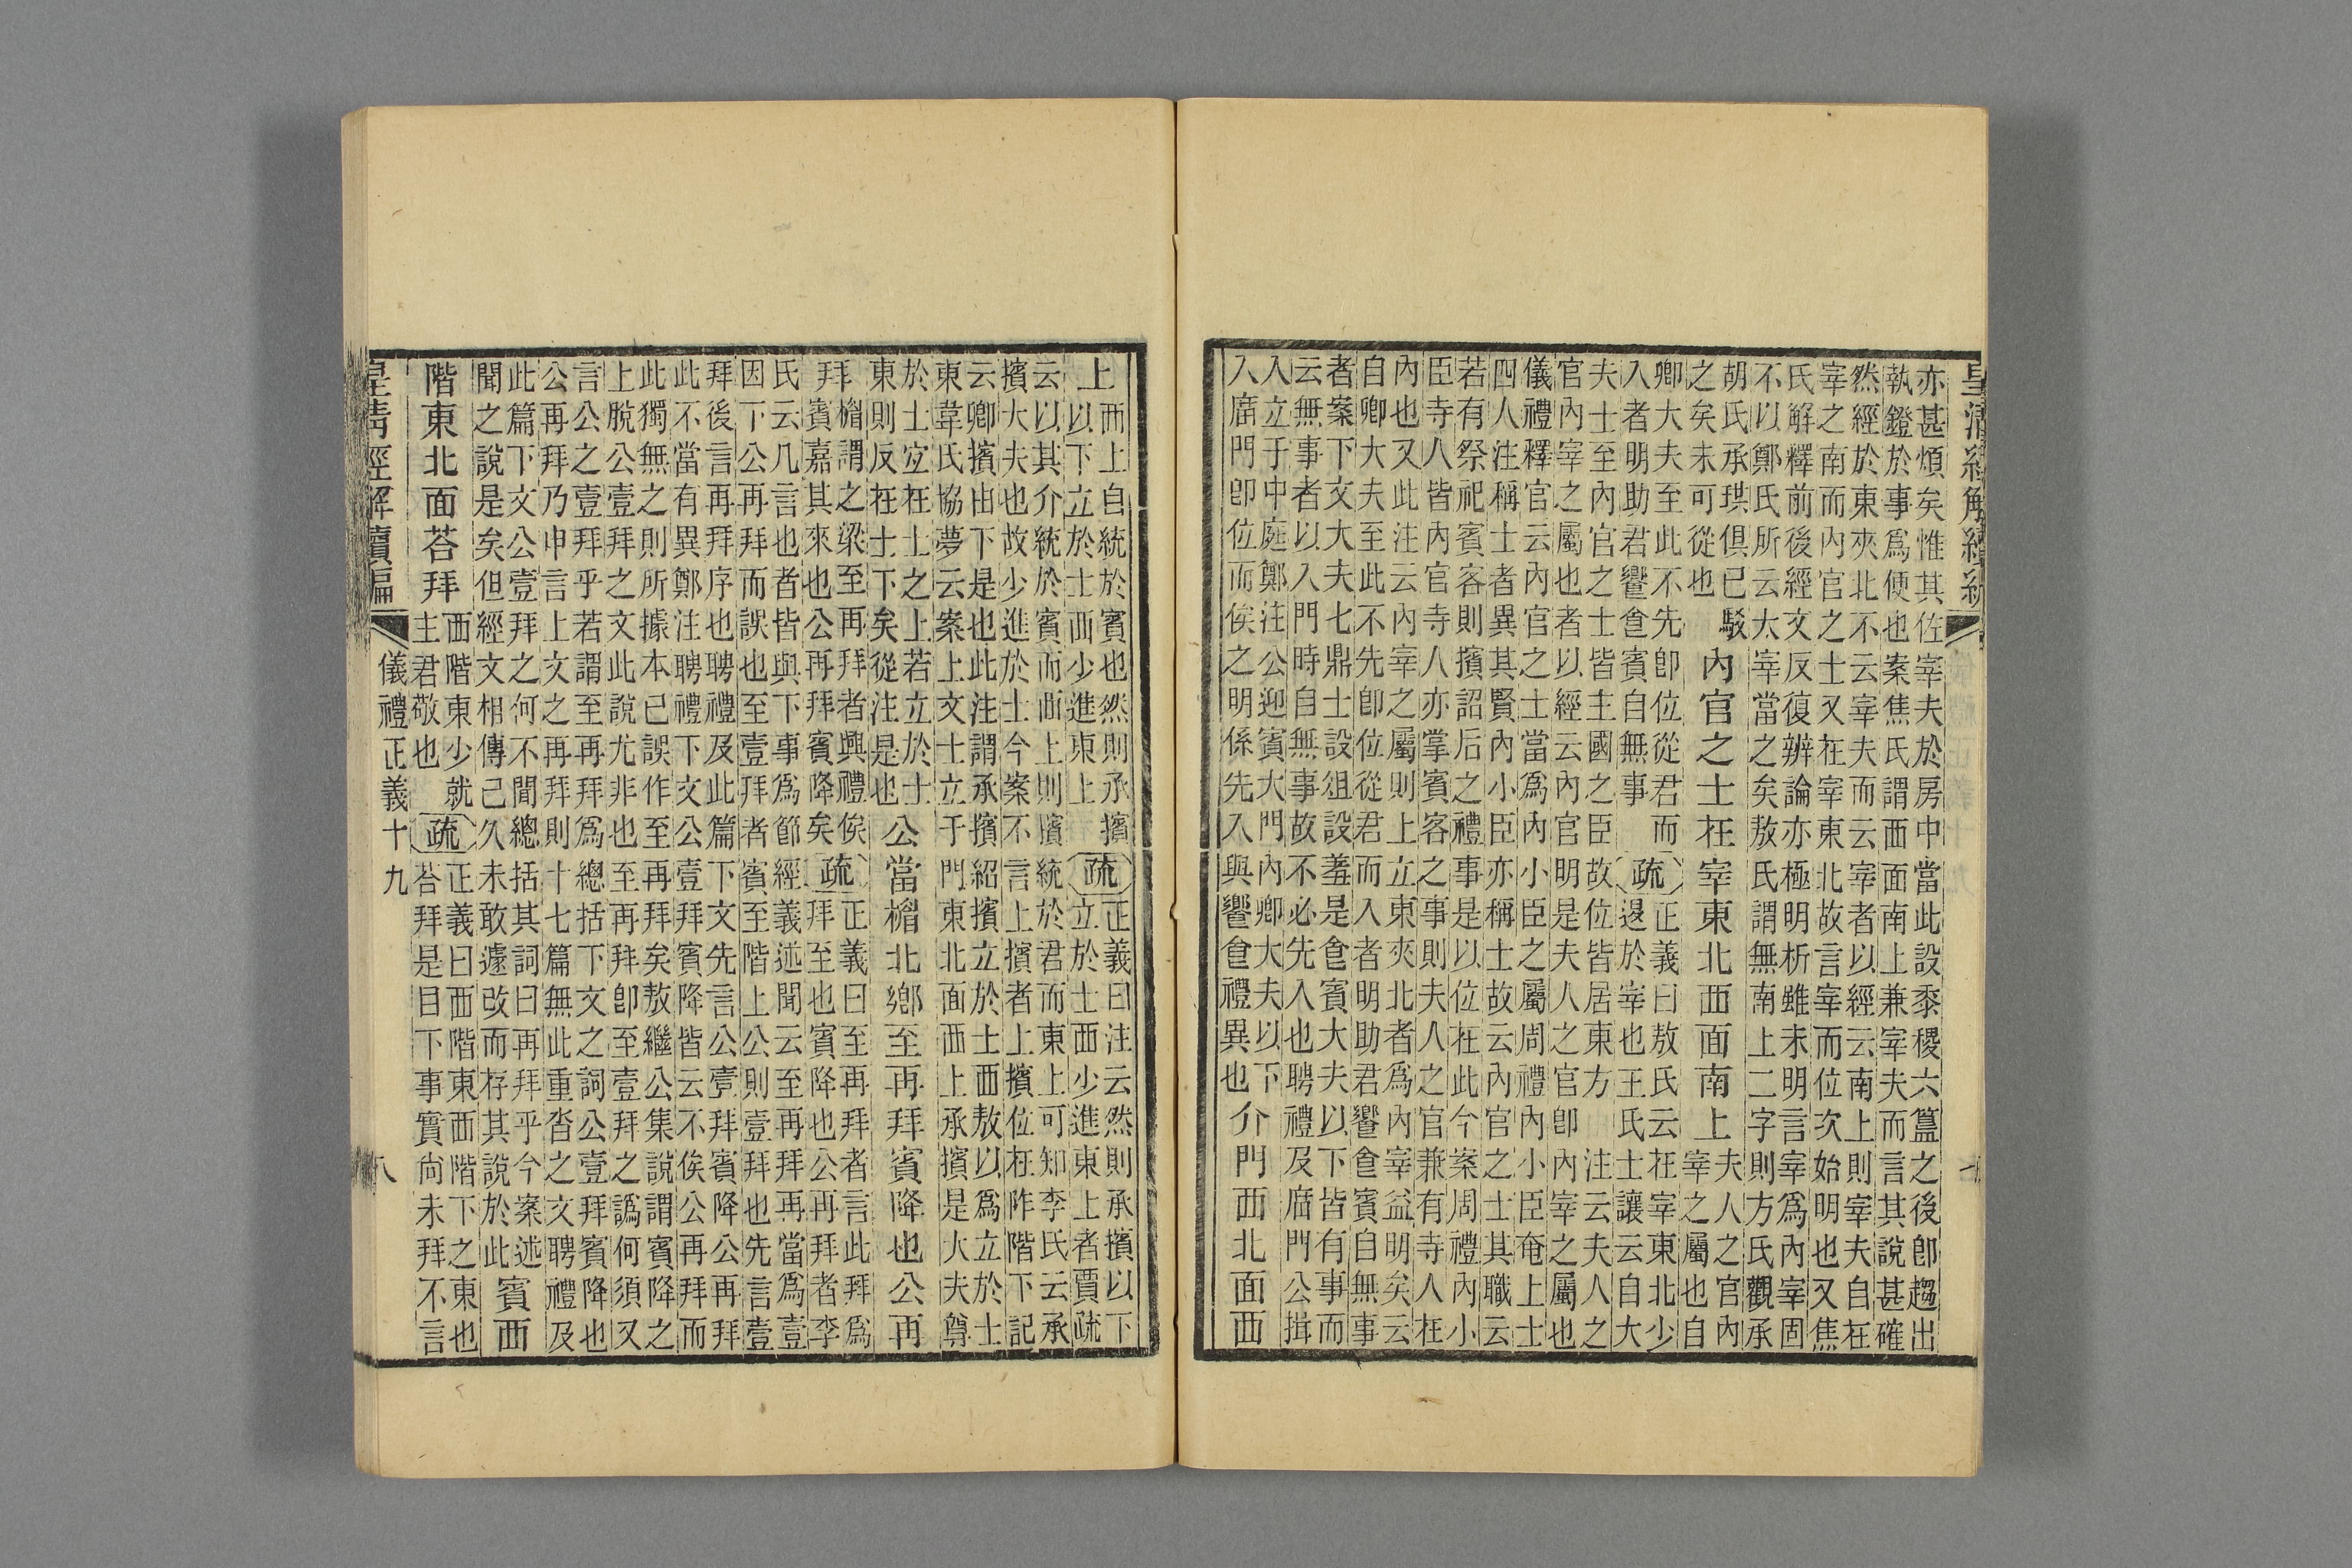 皇清經解續編
亦甚煩矣惟其佐宰夫於房中當此設黍稷六簋之後卽趨出
執鐙於事爲便也案焦氏謂西面南上兼宰夫而言其說甚確
然經於東夾北不云宰夫而云宰者以經云南上則宰夫自在
宰之南而內官之士又在宰東北故言宰而位次始明也又焦
氏解釋前後經文反復辨論亦極明析雖未明言宰爲內宰固
不以鄭氏所云太宰當之矣敖氏謂無南上二字則方氏觀承
胡氏承珙俱已駁
之矣未可從也
內官之士在宰東北西面南上
夫人之官內
宰之屬也自
卿大夫至此不先卽位從君而
入者明助君饗食賓自無事
疏
正義曰敖氏云在宰東北少
退於宰也王氏士讓云自大
夫士至內官之士皆主國之臣故位皆居東方 注云夫人之
官內宰之屬也者以經云內官明是夫人之官卽內宰之屬也
儀禮釋官云內官之士當爲內小臣之屬周禮內小臣奄上士
四人注稱士者異其賢內小臣亦稱士故云內官之士其職云
若有祭祀賓客則擯詔后之禮事是以位在此今案周禮內小
臣寺人皆內官寺人亦掌賓客之事則夫人之官兼有寺人在
內也又此注云內宰之屬則上立東夾北者爲內宰益明矣云
自卿大夫至此不先卽位從君而入者明助君饗食賓自無事
者案下文大夫七鼎士設俎設羞是食賓大夫以下皆有事而
云無事者以入門時自無事故不必先入也聘禮及廟門公揖
入立于中庭鄭注公迎賓大門內卿大夫以下
入廟門卽位而俟之明係先入與饗食禮異也
介門西北面西
上
西上自統於賓也然則承擯
以下立於士西少進東上
疏
正義曰注云然則承擯以下
立於士西少進東上者賈疏
云以其介統於賓而西上則擯統於君而東上可知李氏云承
擯大夫也故少進於士今案不言上擯者上擯位在阼階下記
云卿擯由下是也此注謂承擯紹擯立於士西敖以爲立於士
東韋氏協夢云案上文士立于門東北面西上承擯是大夫尊
於士宜在士之上若立於士
東則反在士下矣從注是也
公當楣北鄉至再拜賓降也公再
拜
楣謂之梁至再拜者興禮俟
賓嘉其來也公再拜賓降矣
疏
正義曰至再拜者言此拜爲
拜至也賓降也公再拜者李
氏云凡言也者皆與下事爲節經義述聞云至再拜再當爲壹
因下公再拜而誤也至壹拜者賓至階上公則壹拜也先言壹
拜後言再拜序也聘禮及此篇下文先言公壹拜賓降公再拜
此不當有異鄭注聘禮下文公壹拜賓降皆云不俟公再拜而
此獨無之則所據本已誤作至再拜矣敖繼公集說謂賓降之
上脫公壹拜之文此說尤非也至再拜卽至壹拜之譌何須又
言公之壹拜乎若謂至再拜爲總括下文之詞公壹拜賓降也
公再拜乃申言上文之再拜則十七篇無此重沓之文聘禮及
此篇下文公壹拜之何不聞總括其詞曰再拜乎今案述
聞之說是矣但經文相傳已久未敢遽改而存其說於此
賓西
階東北面荅拜
西階東少就
主君敬也
疏
正義曰西階東西階下之東也
荅拜是目下事實尚未拜不言
皇清經解續編
儀禮正義十九
八